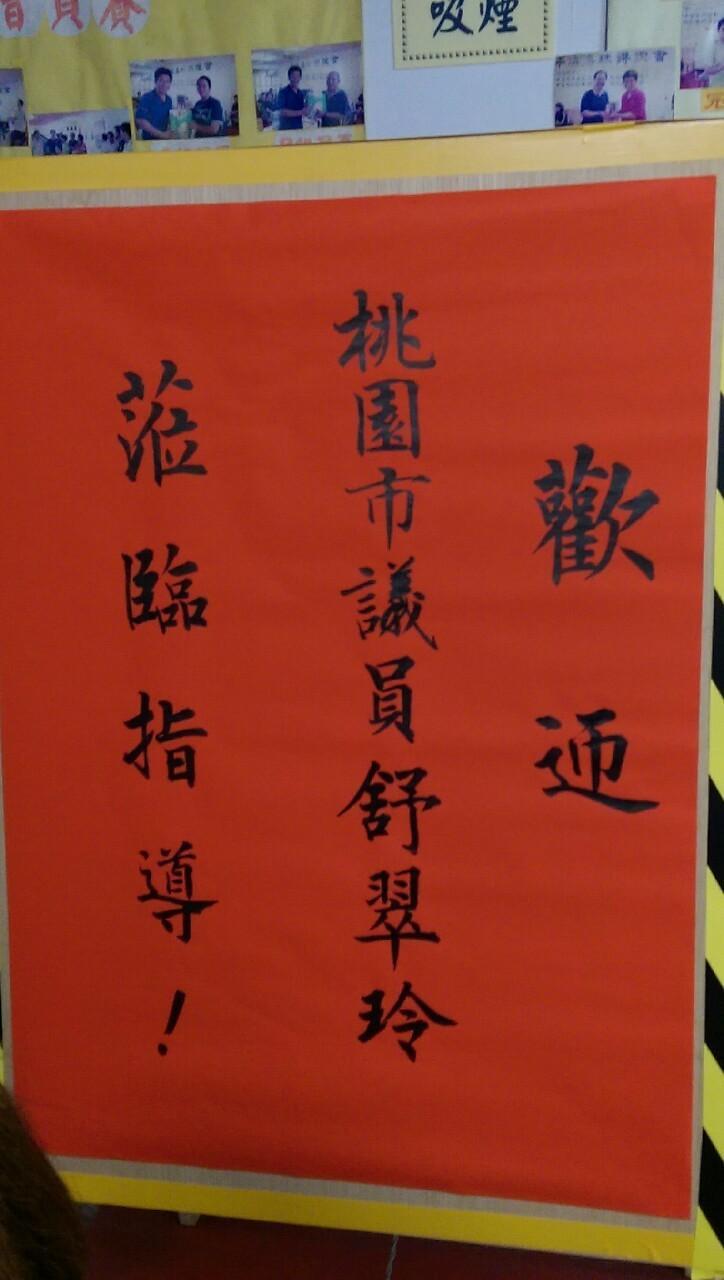 吸煙
歡迎
桃園市議員舒翠玲
蒞臨指導！